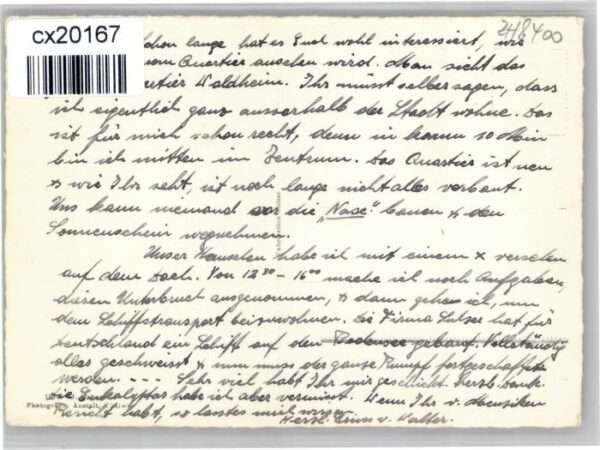 cx20167
248400
schon lange hat es Euch wohl interessiert, wie
vom Quartier aussehen wird. Man sieht das
Quartier Waldheim. Ihr müsst selber sagen, dass
ich eigentlich ganz ausserhalb der Stadt wohne. Das
ist für mich schon recht, denn in kaum 10 Min
bin ich mitten im Zentrum. Das Quartier ist neu
& wie Ihr seht, ist noch lange nicht alles verbaut.
Uns kann niemand vor die „Nase" bauen & den
Sonnenschein wegnehmen.
Unser Häuschen habe ich mit einem x versehen
auf dem Dach. Von 12 30 - 16 00 mache ich noch Aufgaben,
diesen Unterbruch ausgenommen, & dann gehen ich, um
dem Schiffstransport beizuwohnen. Die Firma Sulzer hat für
Deutschland ein Schiff auf den Bodensee gebaut. Vollständig
alles geschweisst & nun muss der ganze Rumpf fortgeschafft
werden. --- Sehr viel habt Ihr mir geschickt. Herzl. Dank.
die Eukalyptus habe ich aber vermisst. Wenn Ihr v.
Bericht habt, so lasst es mich wissen.
Photogr. Anstalt,
Herzl. Gruss v. Walter.